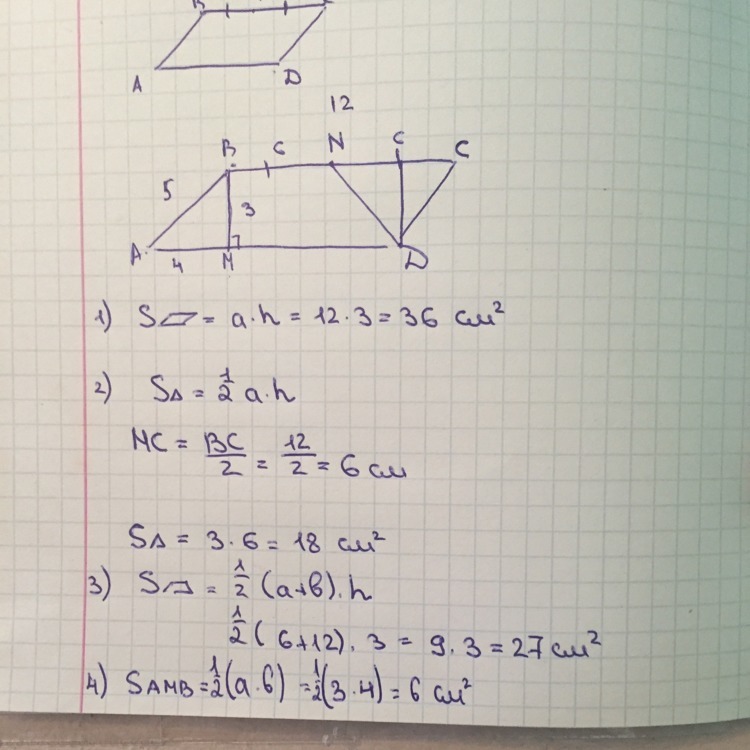 B
A D
12
B 6 N C C
5
3
A 4 M D
1) S▱ = a·h = 12·3 = 36 см²
2) S△ = 1/2 a·h
NC = BC/2 = 12/2 = 6 см
S△ = 3·6 = 18 см²
3) S⏢ = 1/2 (a+b).h
1/2 ( 6+12). 3 = 9.3 = 27 см²
4) SAMB = 1/2(a.b) = 1/2(3.4) = 6 см²